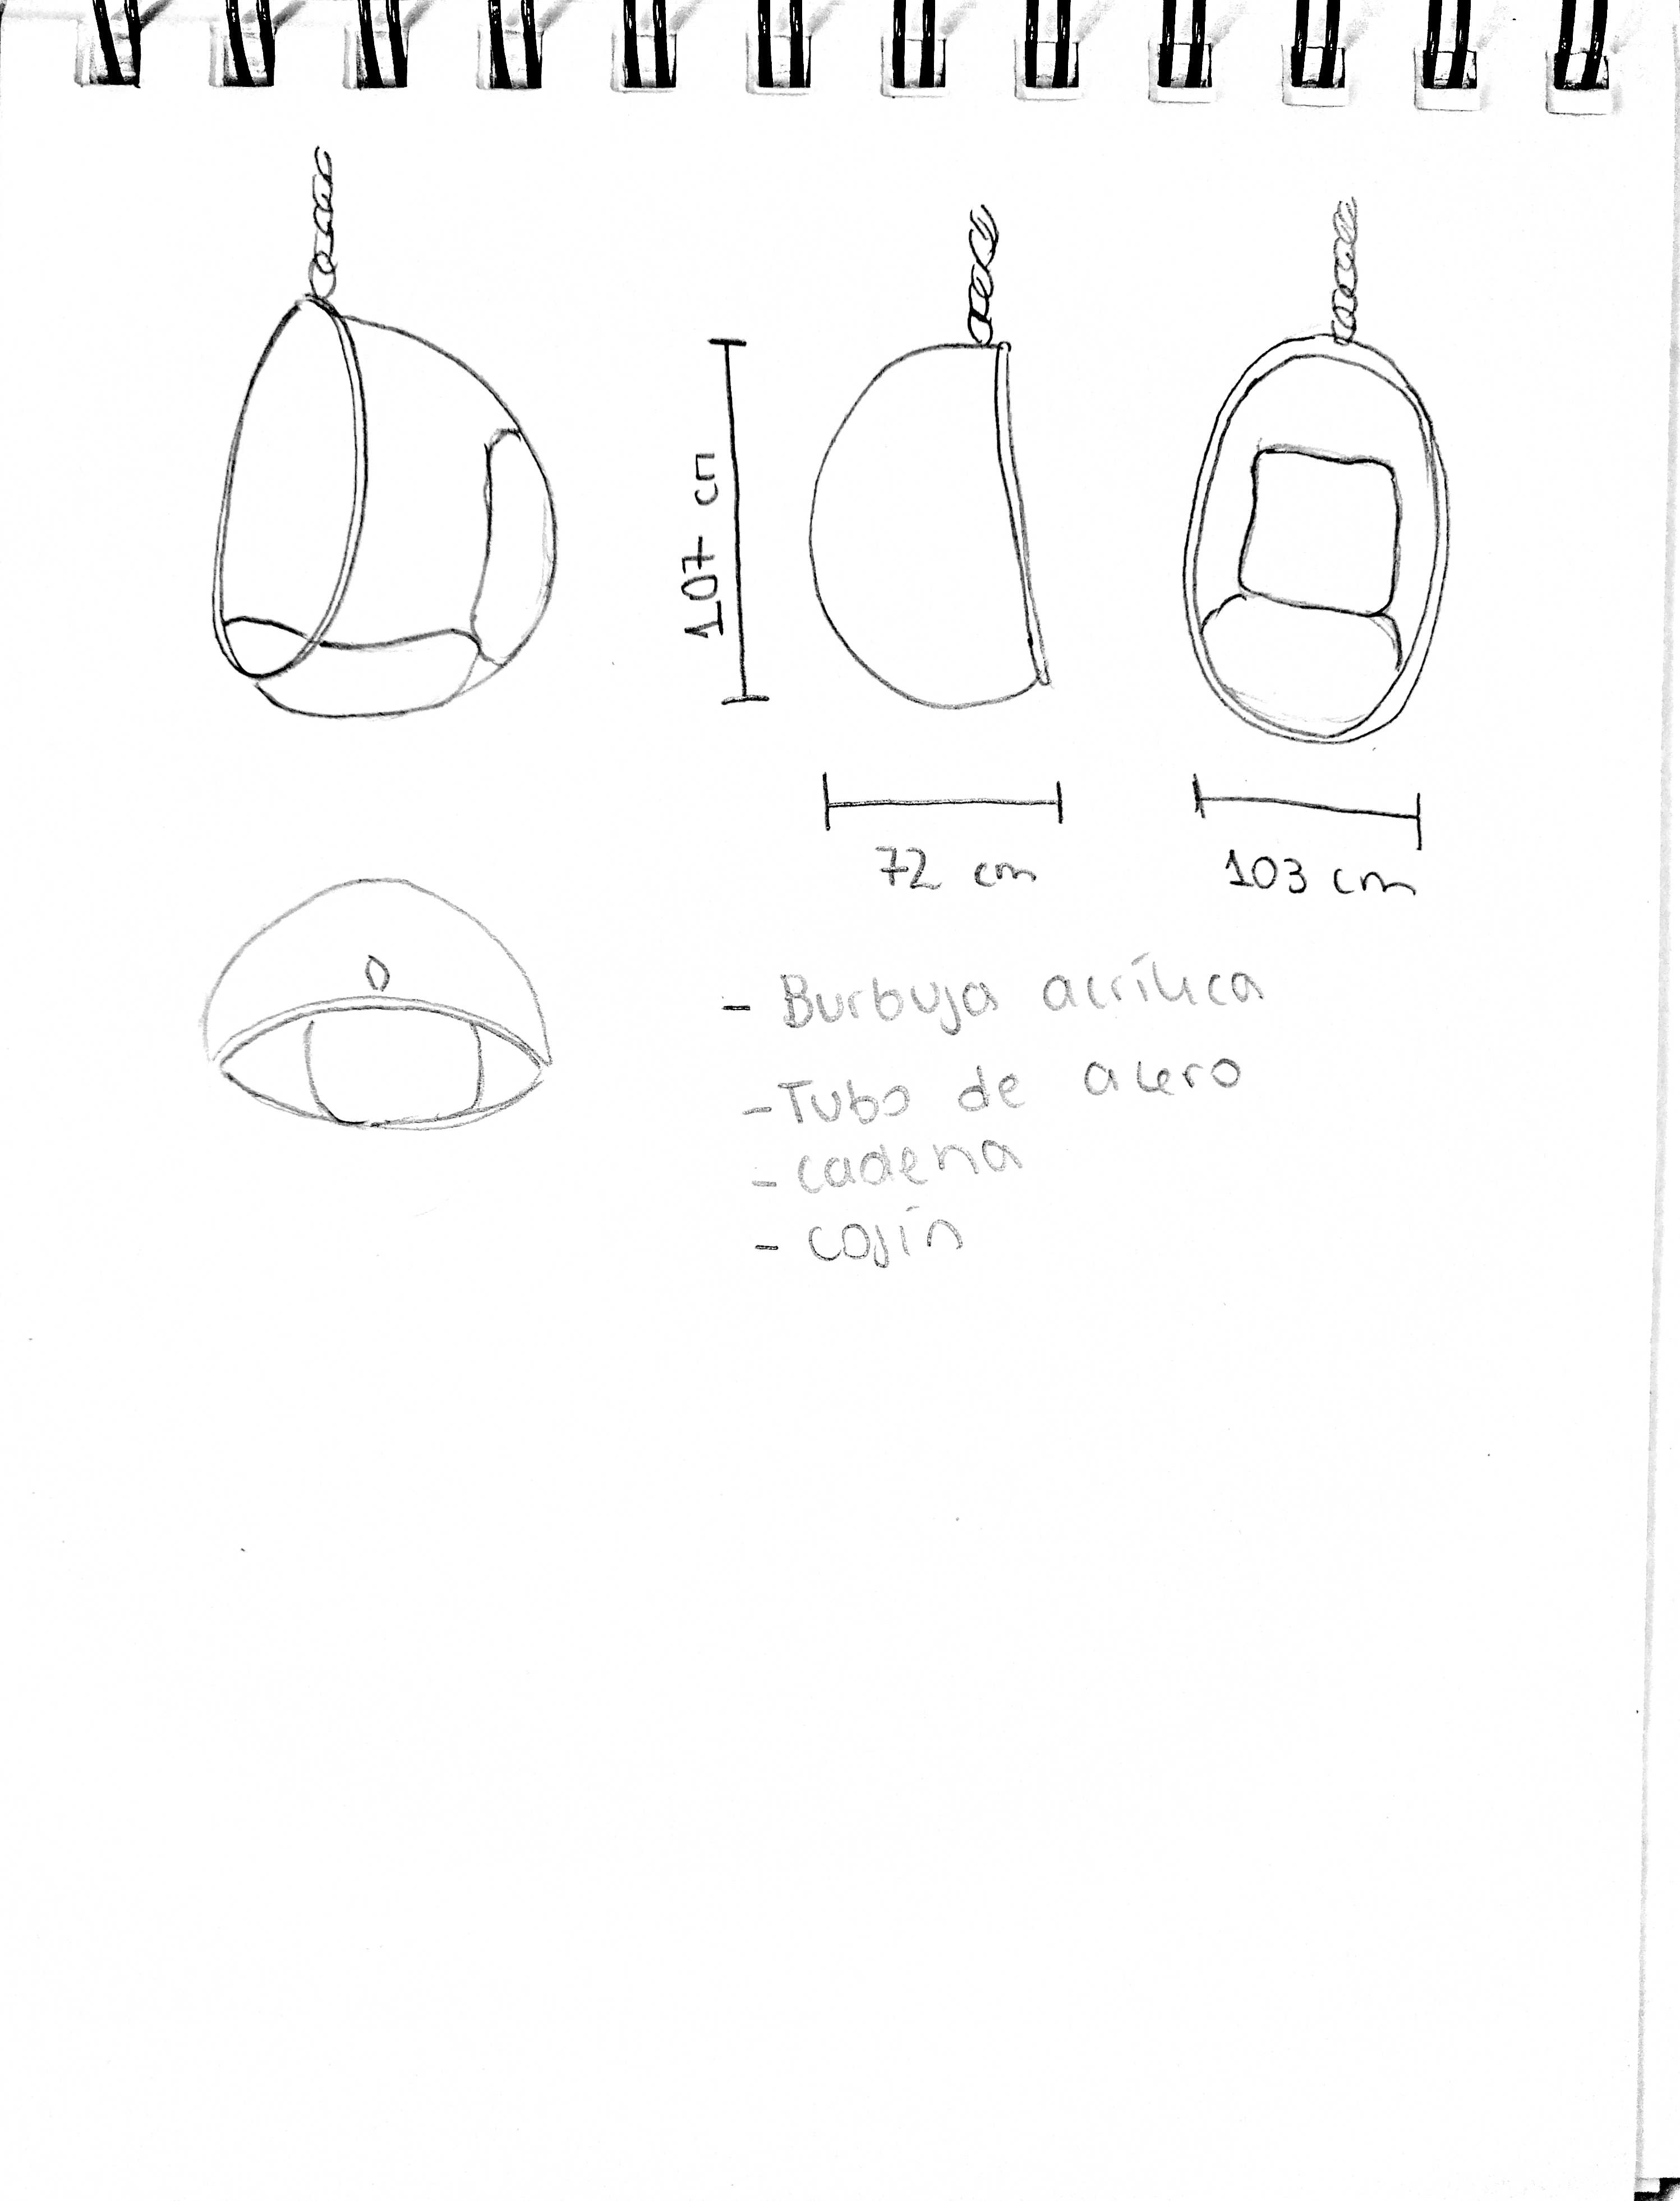 107 cm
72 cm
103 cm
- Burbuja acrílica
- Tubo de acero
- cadena
- cojín